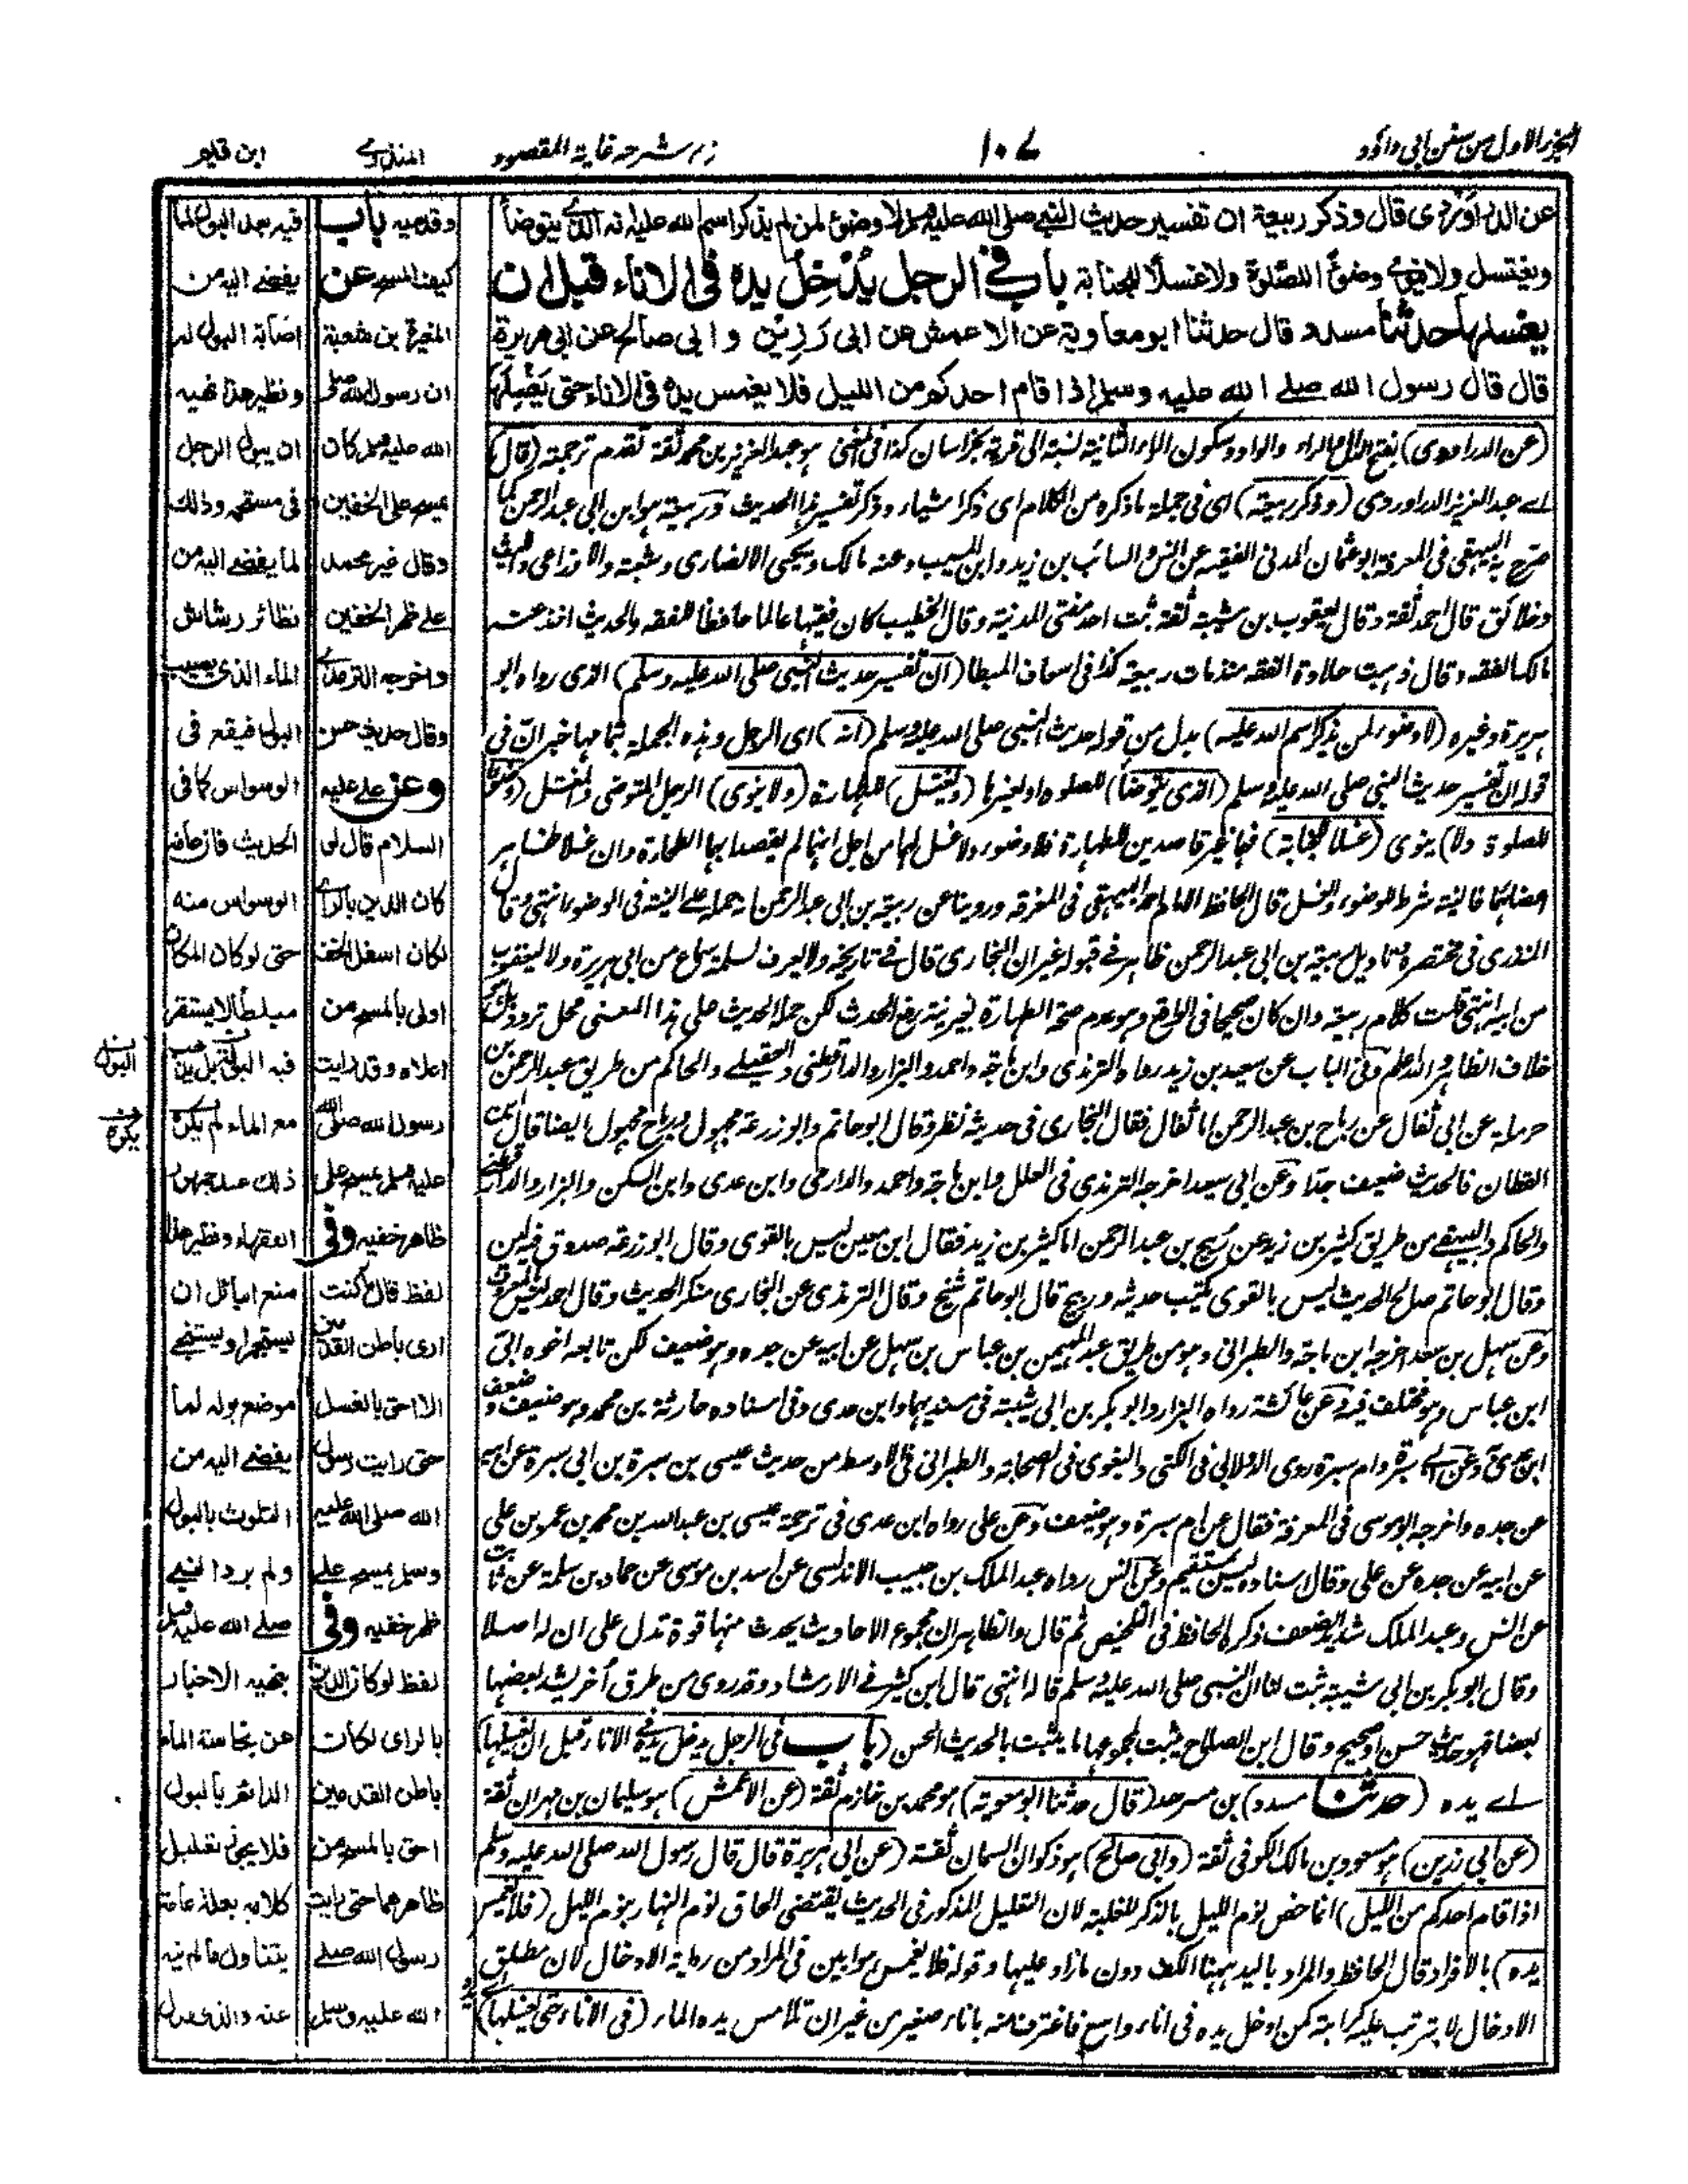 الجزء الاول من سنن ابي داؤد
١٠٧
مع شرحه غاية المقصود
المنذري
ابن قيم
عن الدراوردى قال وذكر ربيعة ان تفسير حديث النبي صلى الله عليه وسلم لا وضوء لمن لم يذكر اسم الله عليه انه الذي يتوضأ
ويغتسل ولا ينوي وضوءً للصلوة ولا غسلًا للجنابة باب في الرجل يُدْخِلُ يده في الاناء قبل ان
يغسلها حدثنا مسدد قال حدثنا ابو معاوية عن الاعمش عن ابى رَزِيْن وابى صالح عن ابى هريرة
قال قال رسول الله صلے الله عليه وسلم اذا قام احدكم من الليل فلا يغمس يده فى الاناء حتى يغسلها
(عن الدراوردى) بفتح الدال والراء والواو وسكون الراء الثانية نسبة الى قرية بخراسان كذا فى المغنى هو عبد العزيز بن محمد ثقة تقدم ترجمته (قال)
اے عبد العزيز الدراوردى (وذكر ربيعة) اى فى جملة ما ذكره من الكلام اى ذكر اشياء وذكر تفسير هذا الحديث وربيعة هو ابن ابى عبد الرحمن كما
صرح به البيهقى فى المعرفة ابو عثمان المدنى الفقيه عن انس والسائب بن يزيد وابن المسيب وعنه مالك ويحيى الانصارى وشعبة والاوزاعى والليث
وخلائق قال احمد ثقة وقال يعقوب بن شيبة ثقة ثبت احد مفتى المدينة وقال الخطيب كان فقيها عالما حافظا للفقه والحديث اخذ عنه
مالك الفقه وقال ذهبت حلاوة الفقه منذ مات ربيعة كذا فى اسعاف المبطا (ان تفسير حديث النبى صلى الله عليه وسلم) الذى رواه ابو
هريرة وغيره (لا وضوء لمن لم يذكر اسم الله عليه) بدل من قوله حديث النبى صلى الله عليه وسلم (انه) اى الرجل وهذه الجملة بتمامها خبر ان فى
قوله ان تفسير حديث النبى صلى الله عليه وسلم (الذى يتوضأ) للصلوة او لغيرها (ويغتسل) للطهارة (ولا ينوى) الرجل المتوضى والمغتسل (وضوءا
للصلوة ولا) ينوى (غسلا للجنابة) فهما غير قاصدين للطهارة فلا وضوء ولا غسل لهما من اجل انهما لم يقصدا بها الطهارة وان غسلا ظاهر
اعضائهما فالنية شرط للوضوء والغسل قال الحافظ الامام البيهقى فى المعرفة وروينا عن ربيعة بن ابى عبد الرحمن انه حمله على النية فى الوضوء انتهى وقال
المنذرى فى مختصره وتاويل ربيعة بن ابى عبد الرحمن ظاهر فى قبوله غير ان البخارى قال فى تاريخه ولا يعرف لسلمة سماع من ابى هريرة ولا ليعقوب
من ابيه انتهى قلت كلام ربيعة وان كان صحيحا فى الواقع وهو عدم صحة الطهارة بغير نية رفع الحدث لكن حمل الحديث على هذا المعنى محل تردد بل هو
خلاف الظاهر والله اعلم وفى الباب عن سعيد بن زيد رواه الترمذى وابن ماجه واحمد والبزار والدارقطنى والعقيلى والحاكم من طريق عبد الرحمن بن
حرملة عن ابى ثفال عن رباح بن عبد الرحمن اما ثفال فقال البخارى فى حديثه نظر وقال ابو حاتم وابو زرعة مجهول ورباح مجهول ايضا قال ابن
القطان فالحديث ضعيف جدا وعن ابى سعيد اخرجه الترمذى فى العلل وابن ماجة واحمد والدارمى وابن عدى وابن السكن والبزار والدارقطنى
والحاكم والبيهقى من طريق كثير بن زيد عن ربيح بن عبد الرحمن اما كثير بن زيد فقال ابن معين ليس بالقوى وقال ابو زرعة صدوق فيه لين
وقال ابو حاتم صالح الحديث ليس بالقوى يكتب حديثه وربيح قال ابو حاتم شيخ وقال الترمذى عن البخارى منكر الحديث وقال احمد ليس بمعروف
وعن سهل بن سعد اخرجه ابن ماجة والطبرانى وهو من طريق عبد المهيمن بن عباس بن سهل عن ابيه عن جده وهو ضعيف لكن تابعه اخوه ابىّ
ابن عباس وهو مختلف فيه وعن عائشة رواه البزار وابو بكر بن ابى شيبة فى مسنديهما وابن عدى وفى اسناده حارثة بن محمد وهو ضعيف وضعف
ابن عدى وعن ابى سبرة وام سبرة روى الدولابى فى الكنى والبغوى فى الصحابة والطبرانى فى الاوسط من حديث عيسى بن سبرة بن ابى سبرة عن ابيه
عن جده واخرجه ابو موسى فى المعرفة فقال عن ام سبرة وهو ضعيف وعن على رواه ابن عدى فى ترجمة عيسى بن عبد الله بن محمد بن عمر بن على
عن ابيه عن جده عن على وقال اسناده ليس بمستقيم وعن انس رواه عبد الملك بن حبيب الاندلسى عن اسد بن موسى عن حماد بن سلمة عن ثابت
عن انس وعبد الملك شديد الضعف ذكره الحافظ فى التلخيص ثم قال والظاهر ان مجموع الاحاديث يحدث منها قوة تدل على ان له اصلا
وقال ابو بكر بن ابى شيبة ثبت لنا ان النبى صلى الله عليه وسلم قاله انتهى قال ابن كثير فى الارشاد وقد روى من طرق أخر يشد بعضها
بعضا فهو حديث حسن او صحيح وقال ابن الصلاح يثبت بمجموعها ما يثبت بالحديث الحسن (باب فى الرجل يدخل يده فى الاناء قبل ان يغسلها)
اے يده (حدثنا مسدد) بن مسرهد (قال حدثنا ابو معوية) هو محمد بن خازم ثقة (عن الاعمش) هو سليمان بن مهران ثقة
(عن ابى رزين) هو مسعود بن مالك الكوفى ثقة (وابى صالح) هو ذكوان السمان ثقة (عن ابى هريرة قال قال رسول الله صلى الله عليه وسلم
اذا قام احدكم من الليل) انما خص نوم الليل بالذكر للغلبة لان التعليل المذكور فى الحديث يقتضى الحاق نوم النهار بنوم الليل (فلا يغمس
يده) بالافراد قال الحافظ والمراد باليد ههنا الكف دون ما زاد عليها وقوله فلا يغمس هو ابين فى المراد من رواية الادخال لان مطلق
الادخال لا يترتب عليه كراهة كمن ادخل يده فى اناء واسع فاغترف منه باناء صغير من غير ان تلامس يده الماء (فى الاناء حتى يغسلها)
وقد ميه باب
كيف المسح عن
المغيرة بن شعبة
ان رسول الله صلى
الله عليه وسلم كان
يمسح على الخفين
وقال غير محمد
على ظهر الخفين
واخرجه الترمذي
وقال حديث حسن
وعن علي عليه
السلام قال لو
كان الدين بالراے
لكان اسفل الخف
اولى بالمسح من
اعلاه وقد رايت
رسول الله صلى الله
عليه وسلم يمسح على
ظاهر خفيه وفي
لفظ قال ما كنت
ارى باطن القدمين
الا احق بالغسل
حتى رايت رسول
الله صلى الله عليه
وسلم يمسح على
ظهر خفيه وفي
لفظ لو كان الدين
بالراى لكان
باطن القدمين
احق بالمسح من
ظاهرهما حتى رايت
رسول الله صلے
الله عليه وسلم
فيه محل البول لما
يفضے اليه من
اصابة البول له
ونظير هذا نهيه
ان يبول الرجل
فى مستحمه وذلك
لما يفضے اليه من
تطائر رشاش
الماء الذى يصيب
البول فيقع فى
الوسواس كما فى
الحديث فان عامة
الوسواس منه
حتى لو كان المكان
مبلطا لا يستقر
فيه البول بل يذهب
مع الماء لم يكره
ذلك عند جمهور
الفقهاء ونظير هذا
منع البائل ان
يستجمر او يستنجے
موضع بوله لما
يفضے اليه من
التلوث بالبول
ولم يرد النبي
صلے الله عليه وسلم
بنهيه الاخبار
عن نجاسة الماء
الدائم بالبول
فلا يجوز تعليل
كلامه بعلة عامة
يتناول ما لم ينه
عنه والذى يدل
البول
يكره